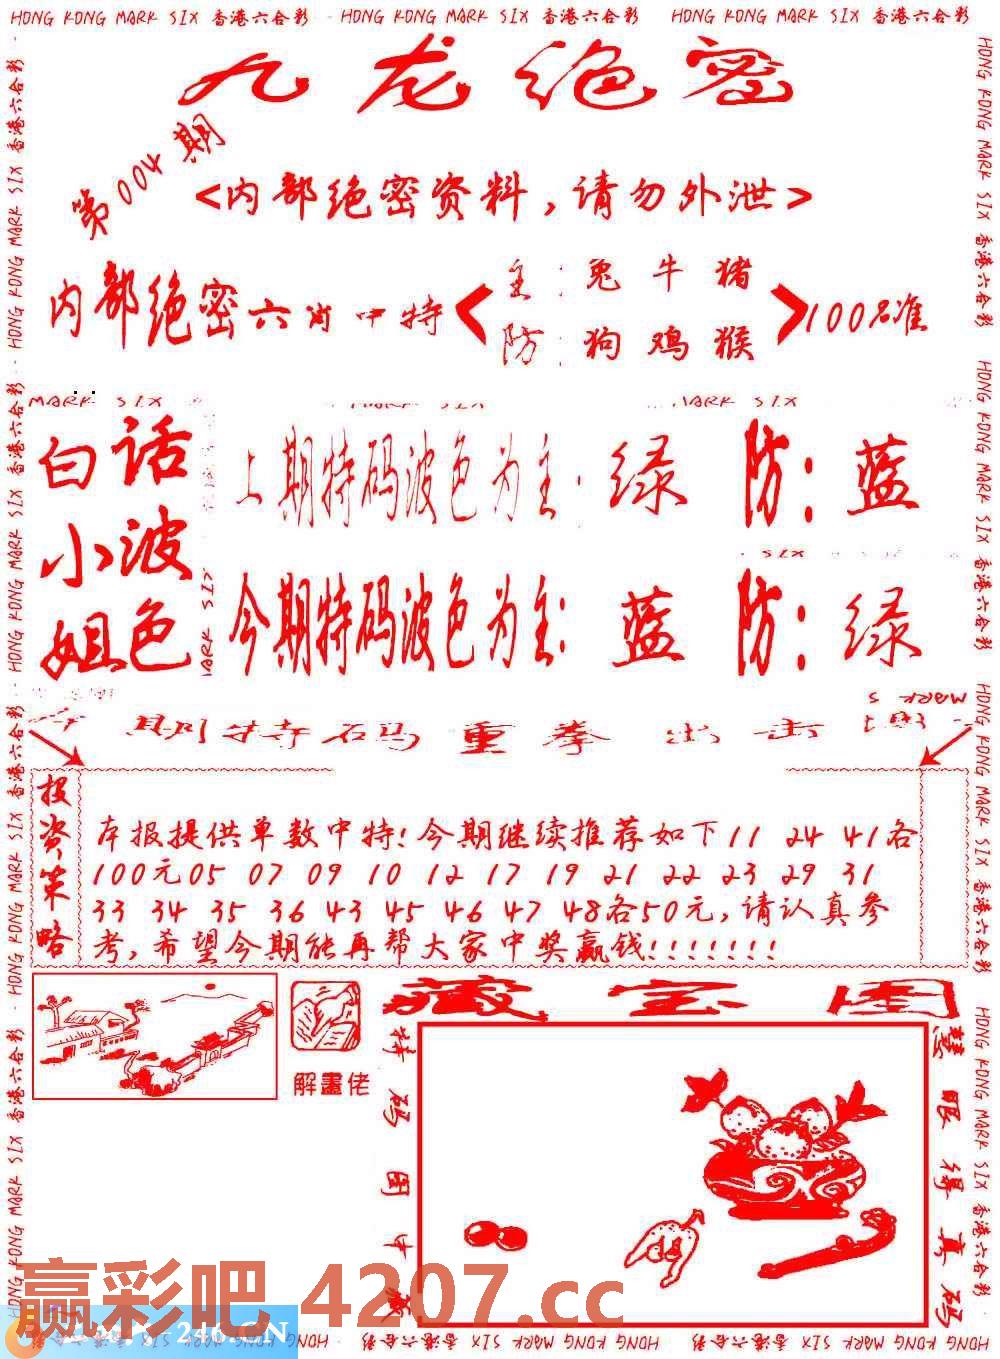 HONG KONG MARK SIX 香港六合彩 HONG KONG MARK SIX 香港六合彩 HONG KONG MARK SIX 香港六合彩
九龙绝密
第004期
<内部绝密资料,请勿外泄>
内部绝密六肖中特
主:兔 牛 猪
防:狗 鸡 猴
100%准
MARK SIX
白话小波姐色
上期特码波色为主:绿 防:蓝
SIX
今期特码波色为主:蓝 防:绿
MARK SIX
期特码重拳出击
投资策略
本报提供单数中特!今期继续推荐如下11 24 41各
100元05 07 09 10 12 17 19 21 22 23 29 31
33 34 35 36 43 45 46 47 48各50元,请认真参
考,希望今期能再帮大家中奖赢钱!!!!!!!
藏宝图
解畫佬
特码图中
慧眼得真码
赢彩吧 4207.cc
246.CN
HONG KONG MARK SIX 香港六合彩